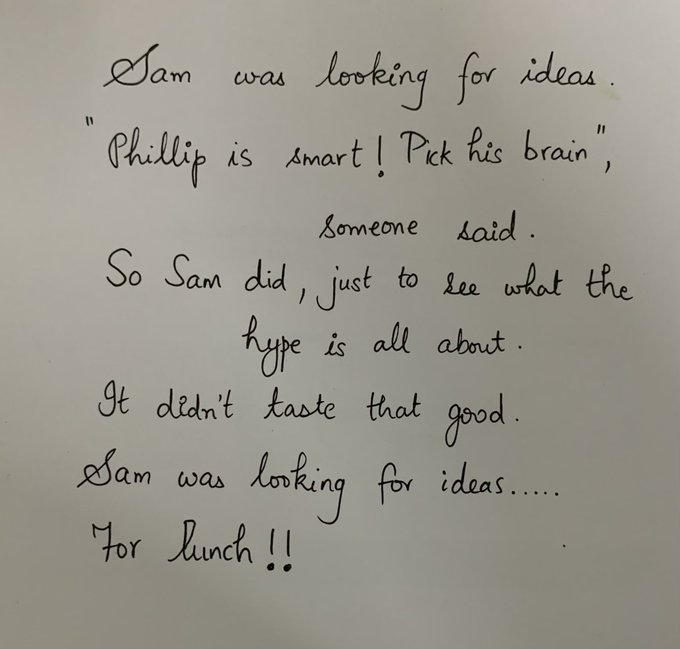 Sam was looking for ideas.
"Phillip is smart! Pick his brain",
someone said.
So Sam did, just to see what the
hype is all about.
It didn't taste that good.
Sam was looking for ideas.....
For lunch!!